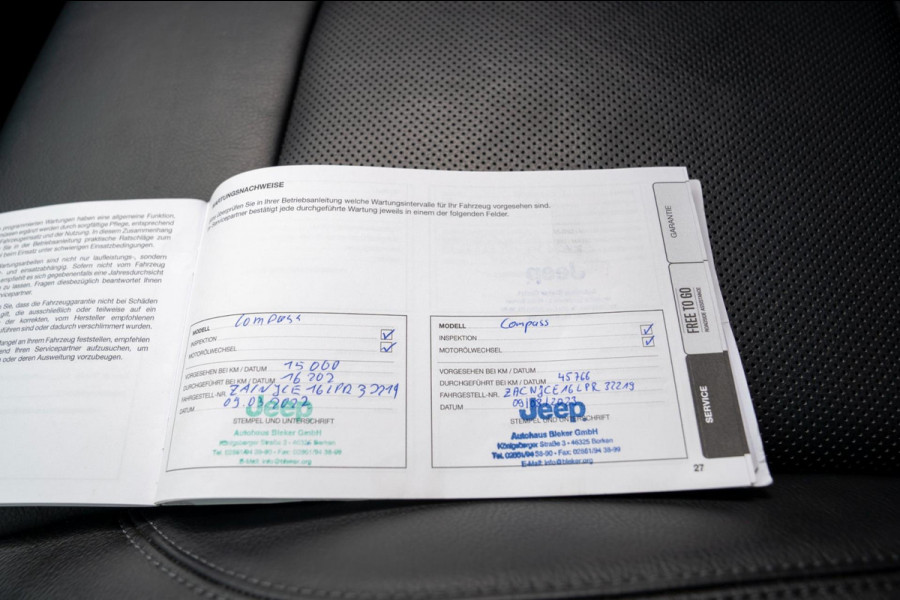 programmierten Wartungen haben eine allgemeine Funktion,
müssen ergänzt werden durch sorgfältige Pflege, entsprechend
Fahrzeugeinsatz und der Nutzung. In diesem Zusammenhang
Sie in der Betriebsanleitung praktische Ratschläge zum
beim Einsatz unter schwierigen Einsatzbedingungen.
Wartungsarbeiten sind nicht nur laufleistungs-, sondern
und einsatzabhängig. Sofern nicht vom Fahrzeug
empfiehlt es sich gegebenenfalls eine Jahresdurchsicht
zu lassen. Fragen diesbezüglich beantwortet Ihnen
Servicepartner.
Sie, dass die Fahrzeuggarantie nicht bei Schäden
die ausschließlich oder teilweise auf ein
der korrekten, vom Hersteller empfohlenen
sind oder dadurch verschlimmert wurden.
an Ihrem Fahrzeug feststellen, empfehlen
Ihren Servicepartner aufzusuchen, um
oder deren Ausweitung vorzubeugen.
WARTUNGSNACHWEISE
Sie in Ihrer Betriebsanleitung welche Wartungsintervalle für Ihr Fahrzeug vorgesehen sind.
Servicepartner bestätigt jede durchgeführte Wartung jeweils in einem der folgenden Felder.
MODELL Compass
INSPEKTION
MOTORÖLWECHSEL
VORGESEHEN BEI KM / DATUM 15000
DURCHGEFÜHRT BEI KM / DATUM 16202
FAHRGESTELL-NR. ZACNJCE16LPR32219
DATUM 09.03.2022
Jeep
STEMPEL UND UNTERSCHRIFT
Autohaus Bleker GmbH
Königsberger Straße 3 - 46325 Borken
Tel. 02861/94 39-90 - Fax: 02861/94 39-99
E-Mail: info@bleker.org
MODELL Compass
INSPEKTION
MOTORÖLWECHSEL
VORGESEHEN BEI KM / DATUM
DURCHGEFÜHRT BEI KM / DATUM 45766
FAHRGESTELL-NR. ZACNJCE16LPR32219
DATUM
Jeep
STEMPEL UND UNTERSCHRIFT
Autohaus Bleker GmbH
Königsberger Straße 3 - 46325 Borken
Tel. 02861/94 39-90 - Fax: 02861/94 39-99
E-Mail: info@bleker.org
27
GARANTIE
FREE TO GO
SERVICE